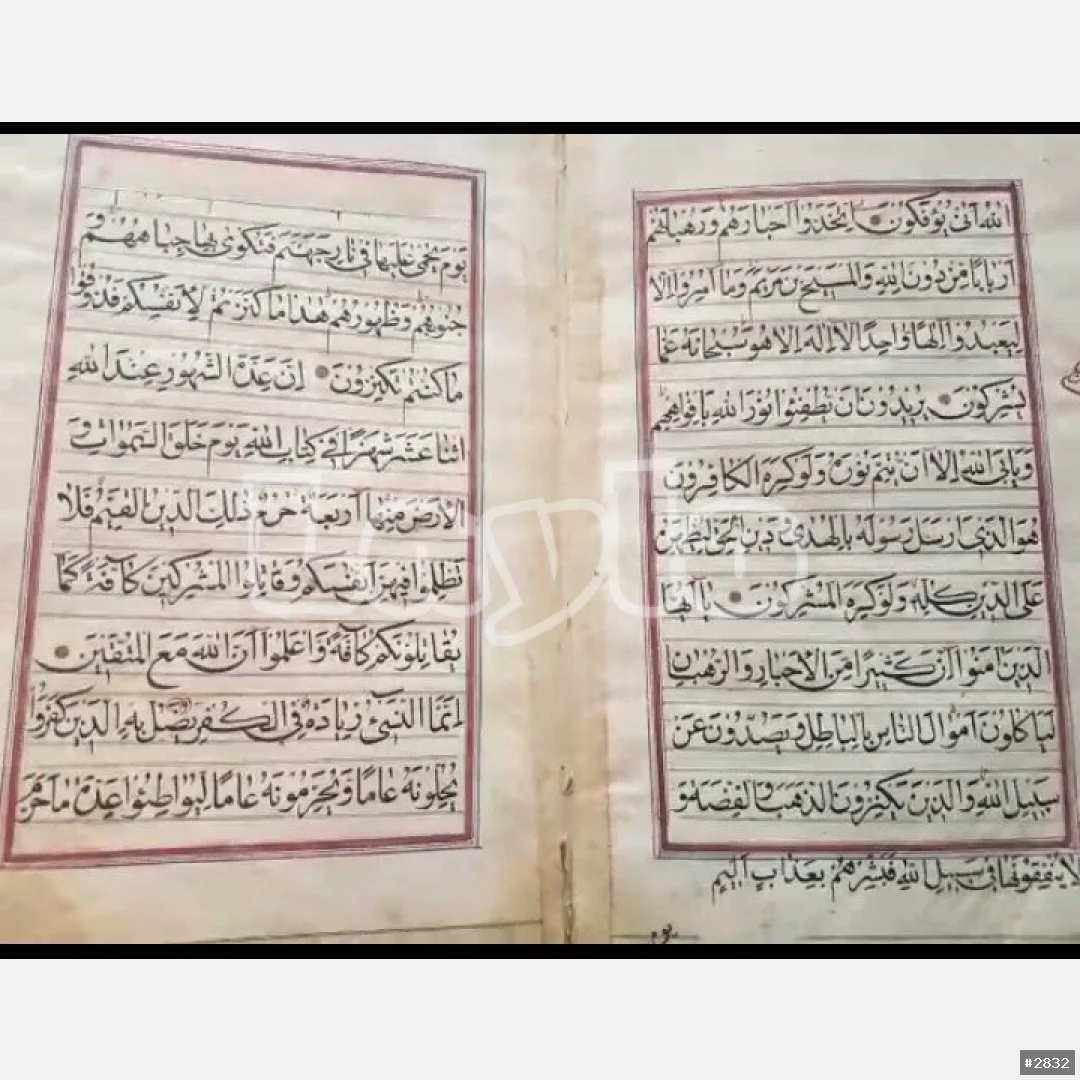 الله أنى يؤفكون اتخذوا أحبارهم ورهبانهم
أربابا من دون الله والمسيح بن مريم وما أمروا إلا
ليعبدوا إلها واحدا لا إله إلا هو سبحانه عما
يشركون يريدون أن يطفئوا نور الله بافواههم
ويأبى الله إلا أن يتم نوره ولو كره الكافرون
هو الذي أرسل رسوله بالهدى ودين الحق ليظهره
على الدين كله ولو كره المشركون يا أيها
الذين آمنوا إن كثيرا من الأحبار والرهبان
ليأكلون أموال الناس بالباطل ويصدون عن
سبيل الله والذين يكنزون الذهب والفضة و
لا ينفقونها في سبيل الله فبشرهم بعذاب أليم
يوم
يوم يحمى عليها في نار جهنم فتكوى بها جباههم و
جنوبهم وظهورهم هذا ما كنزتم لأنفسكم فذوقوا
ما كنتم تكنزون إن عدة الشهور عند الله
اثنا عشر شهرا في كتاب الله يوم خلق السموات و
الأرض منها أربعة حرم ذلك الدين القيم فلا
تظلموا فيهن أنفسكم وقاتلوا المشركين كافة كما
يقاتلونكم كافة واعلموا أن الله مع المتقين
إنما النسيء زيادة في الكفر يضل به الذين كفروا
يحلونه عاما ويحرمونه عاما ليواطئوا عدة ما حرم
#2832